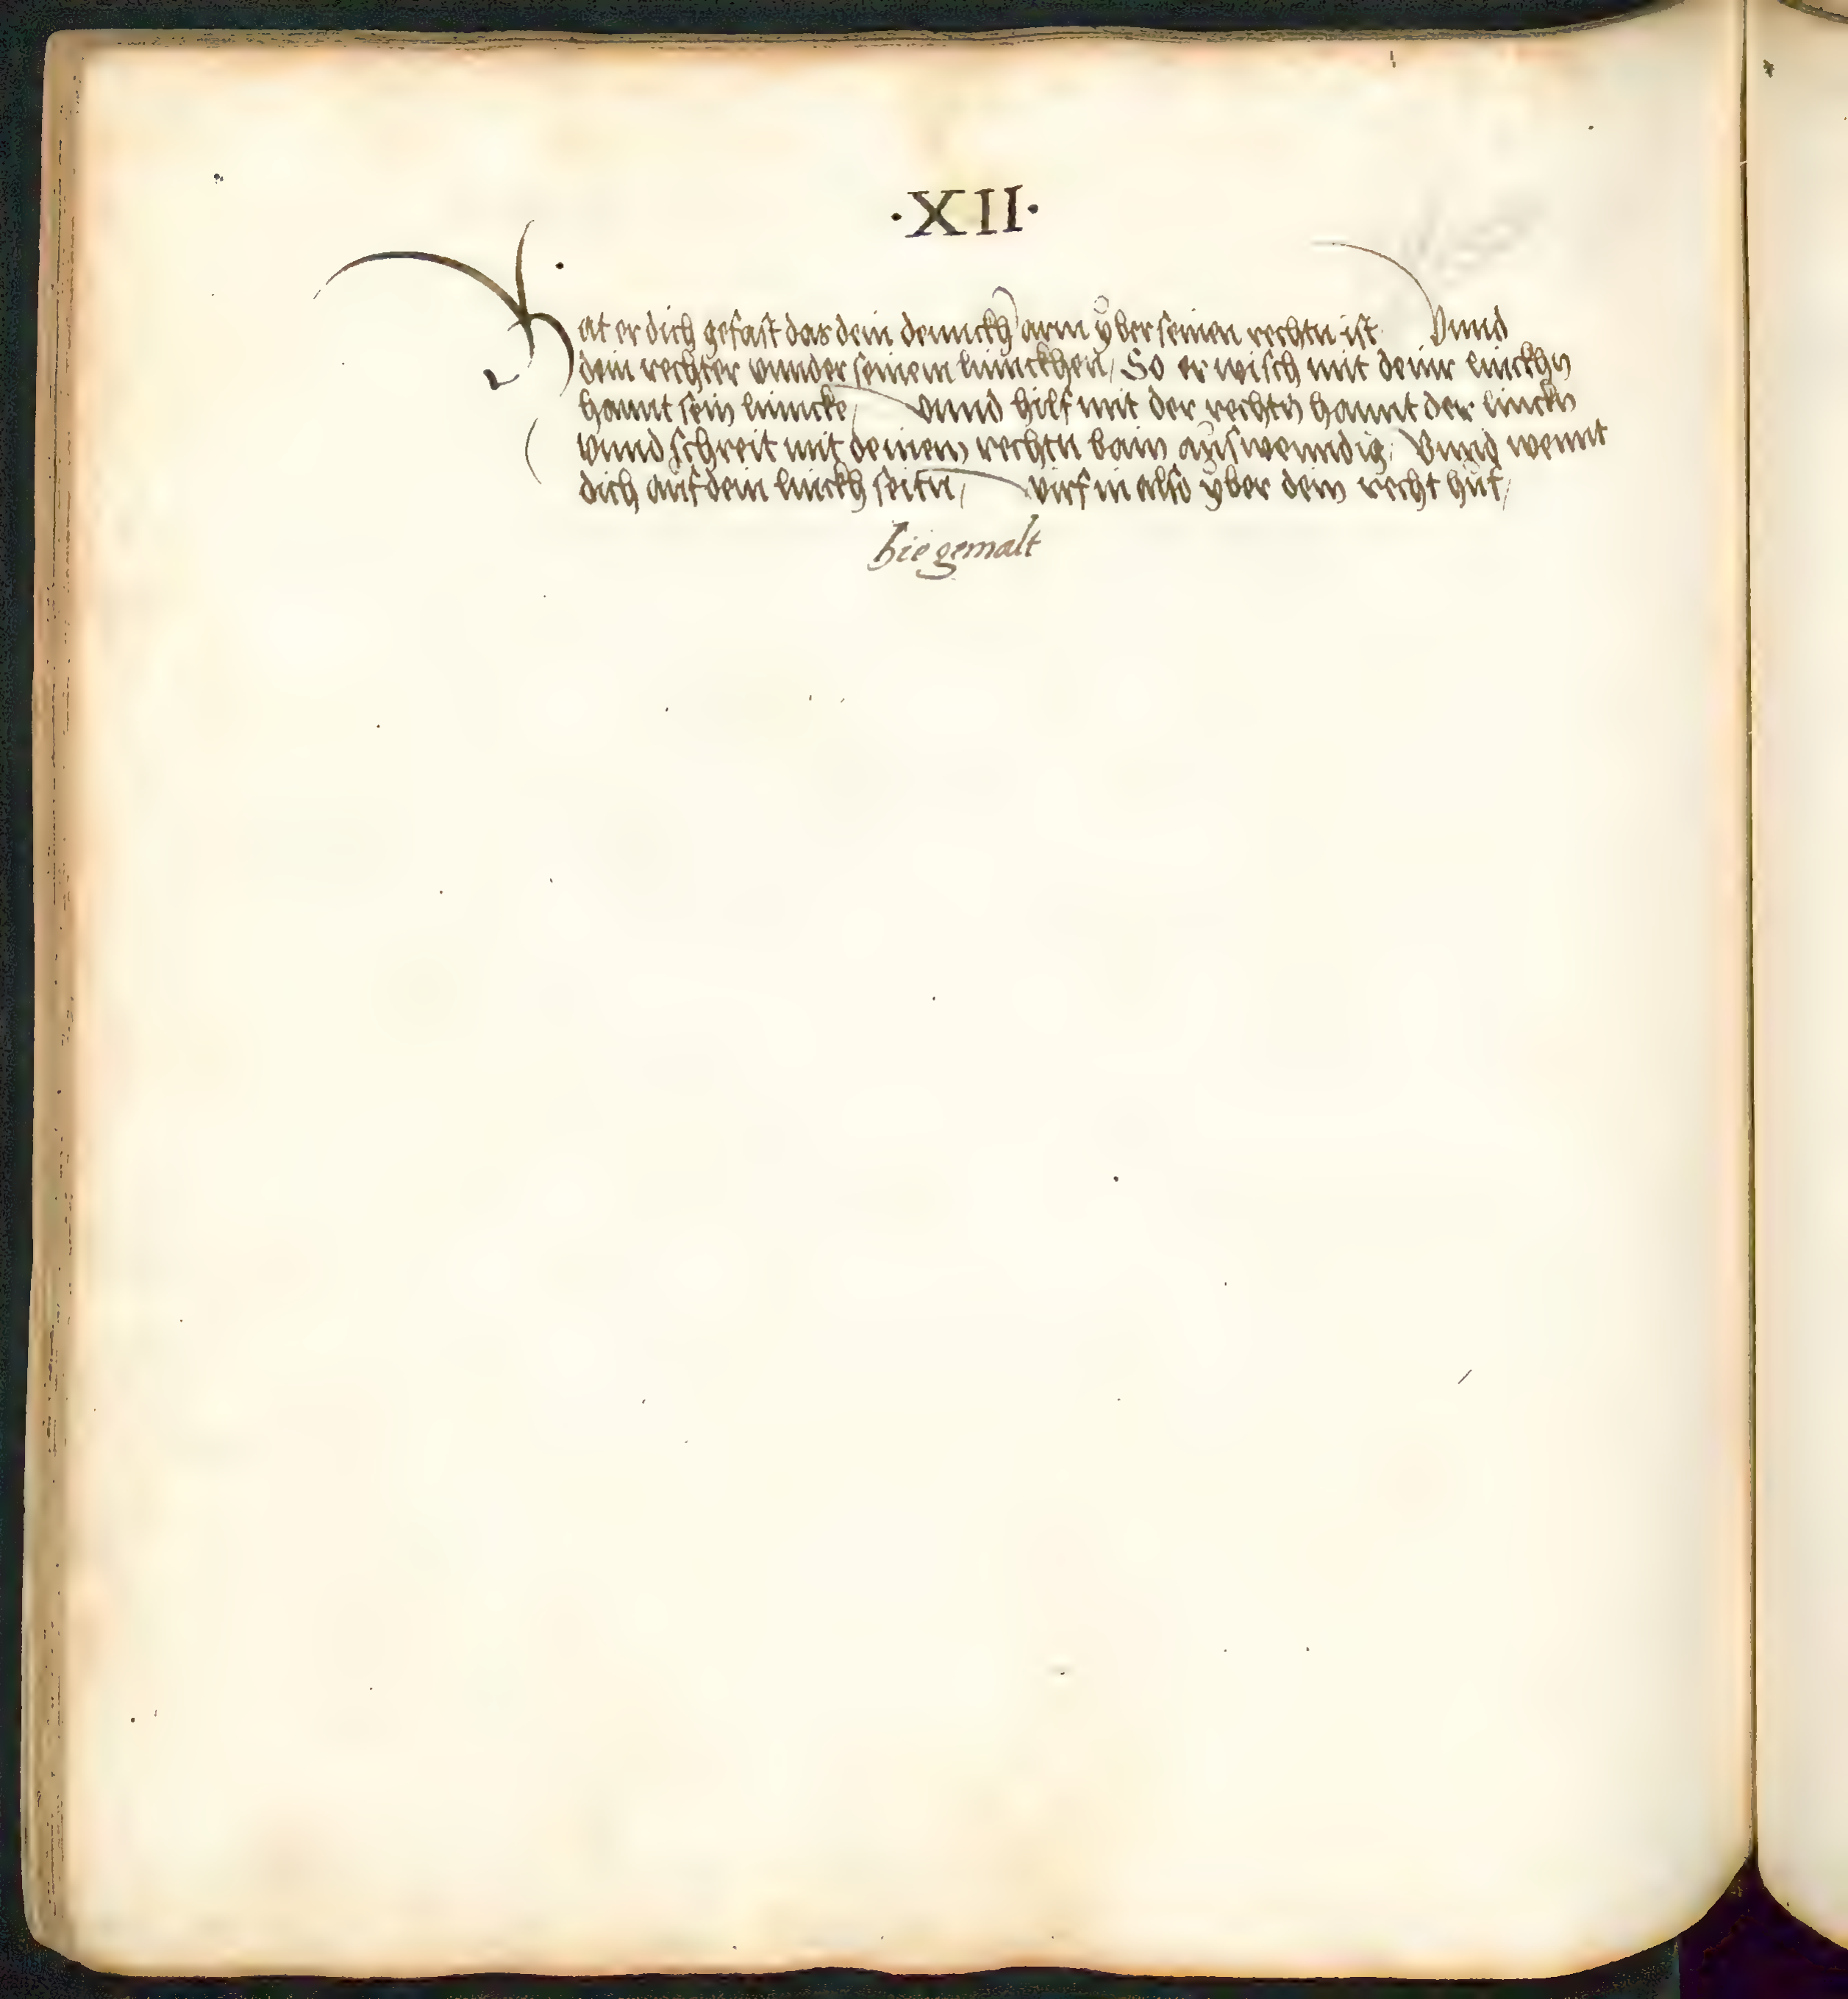 ·XII·
Hat er dich gefast das dein dennckh arm ÿber seinen rechtn ist Vnnd
dein rechter vnnder seinem linnckhen / So er wisch mit deinr linckhn
hannt sein linncke / vnnd hilf mit der rechtn hannt der linckn
vnnd schreit mit deinem rechtn bain auswenndig / Vnnd wennt
dich auf dein linckh seitn / virf in also ÿber dein recht huf /
hie gemalt